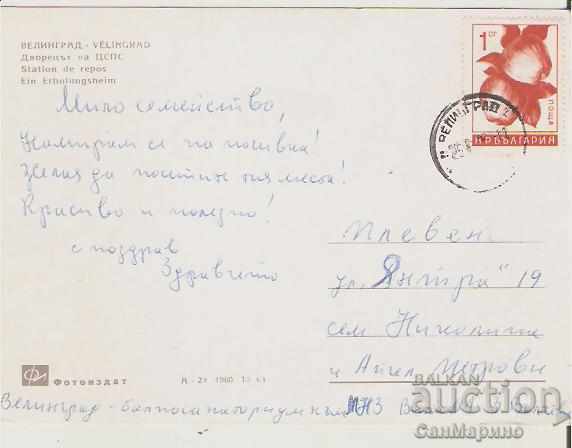 ВЕЛИНГРАД - VELINGRAD
Дворецът на ЦСПС
Station de repos
Ein Erholungsheim
Мило семейство,
Намирам се на почивка!
Желая да посетите тия места!
Красиво и полезно!
с поздрав
Здравчето
1 ст
ПОЩА
НР БЪЛГАРИЯ
ВЕЛИНГРАД
Плевен
ул. "Янтра" 19
сем. Николина
и Ангел Петрови
Фотоиздат
Велинград - балносанаториум към МНЗ
BALKAN
auction
СанМарино